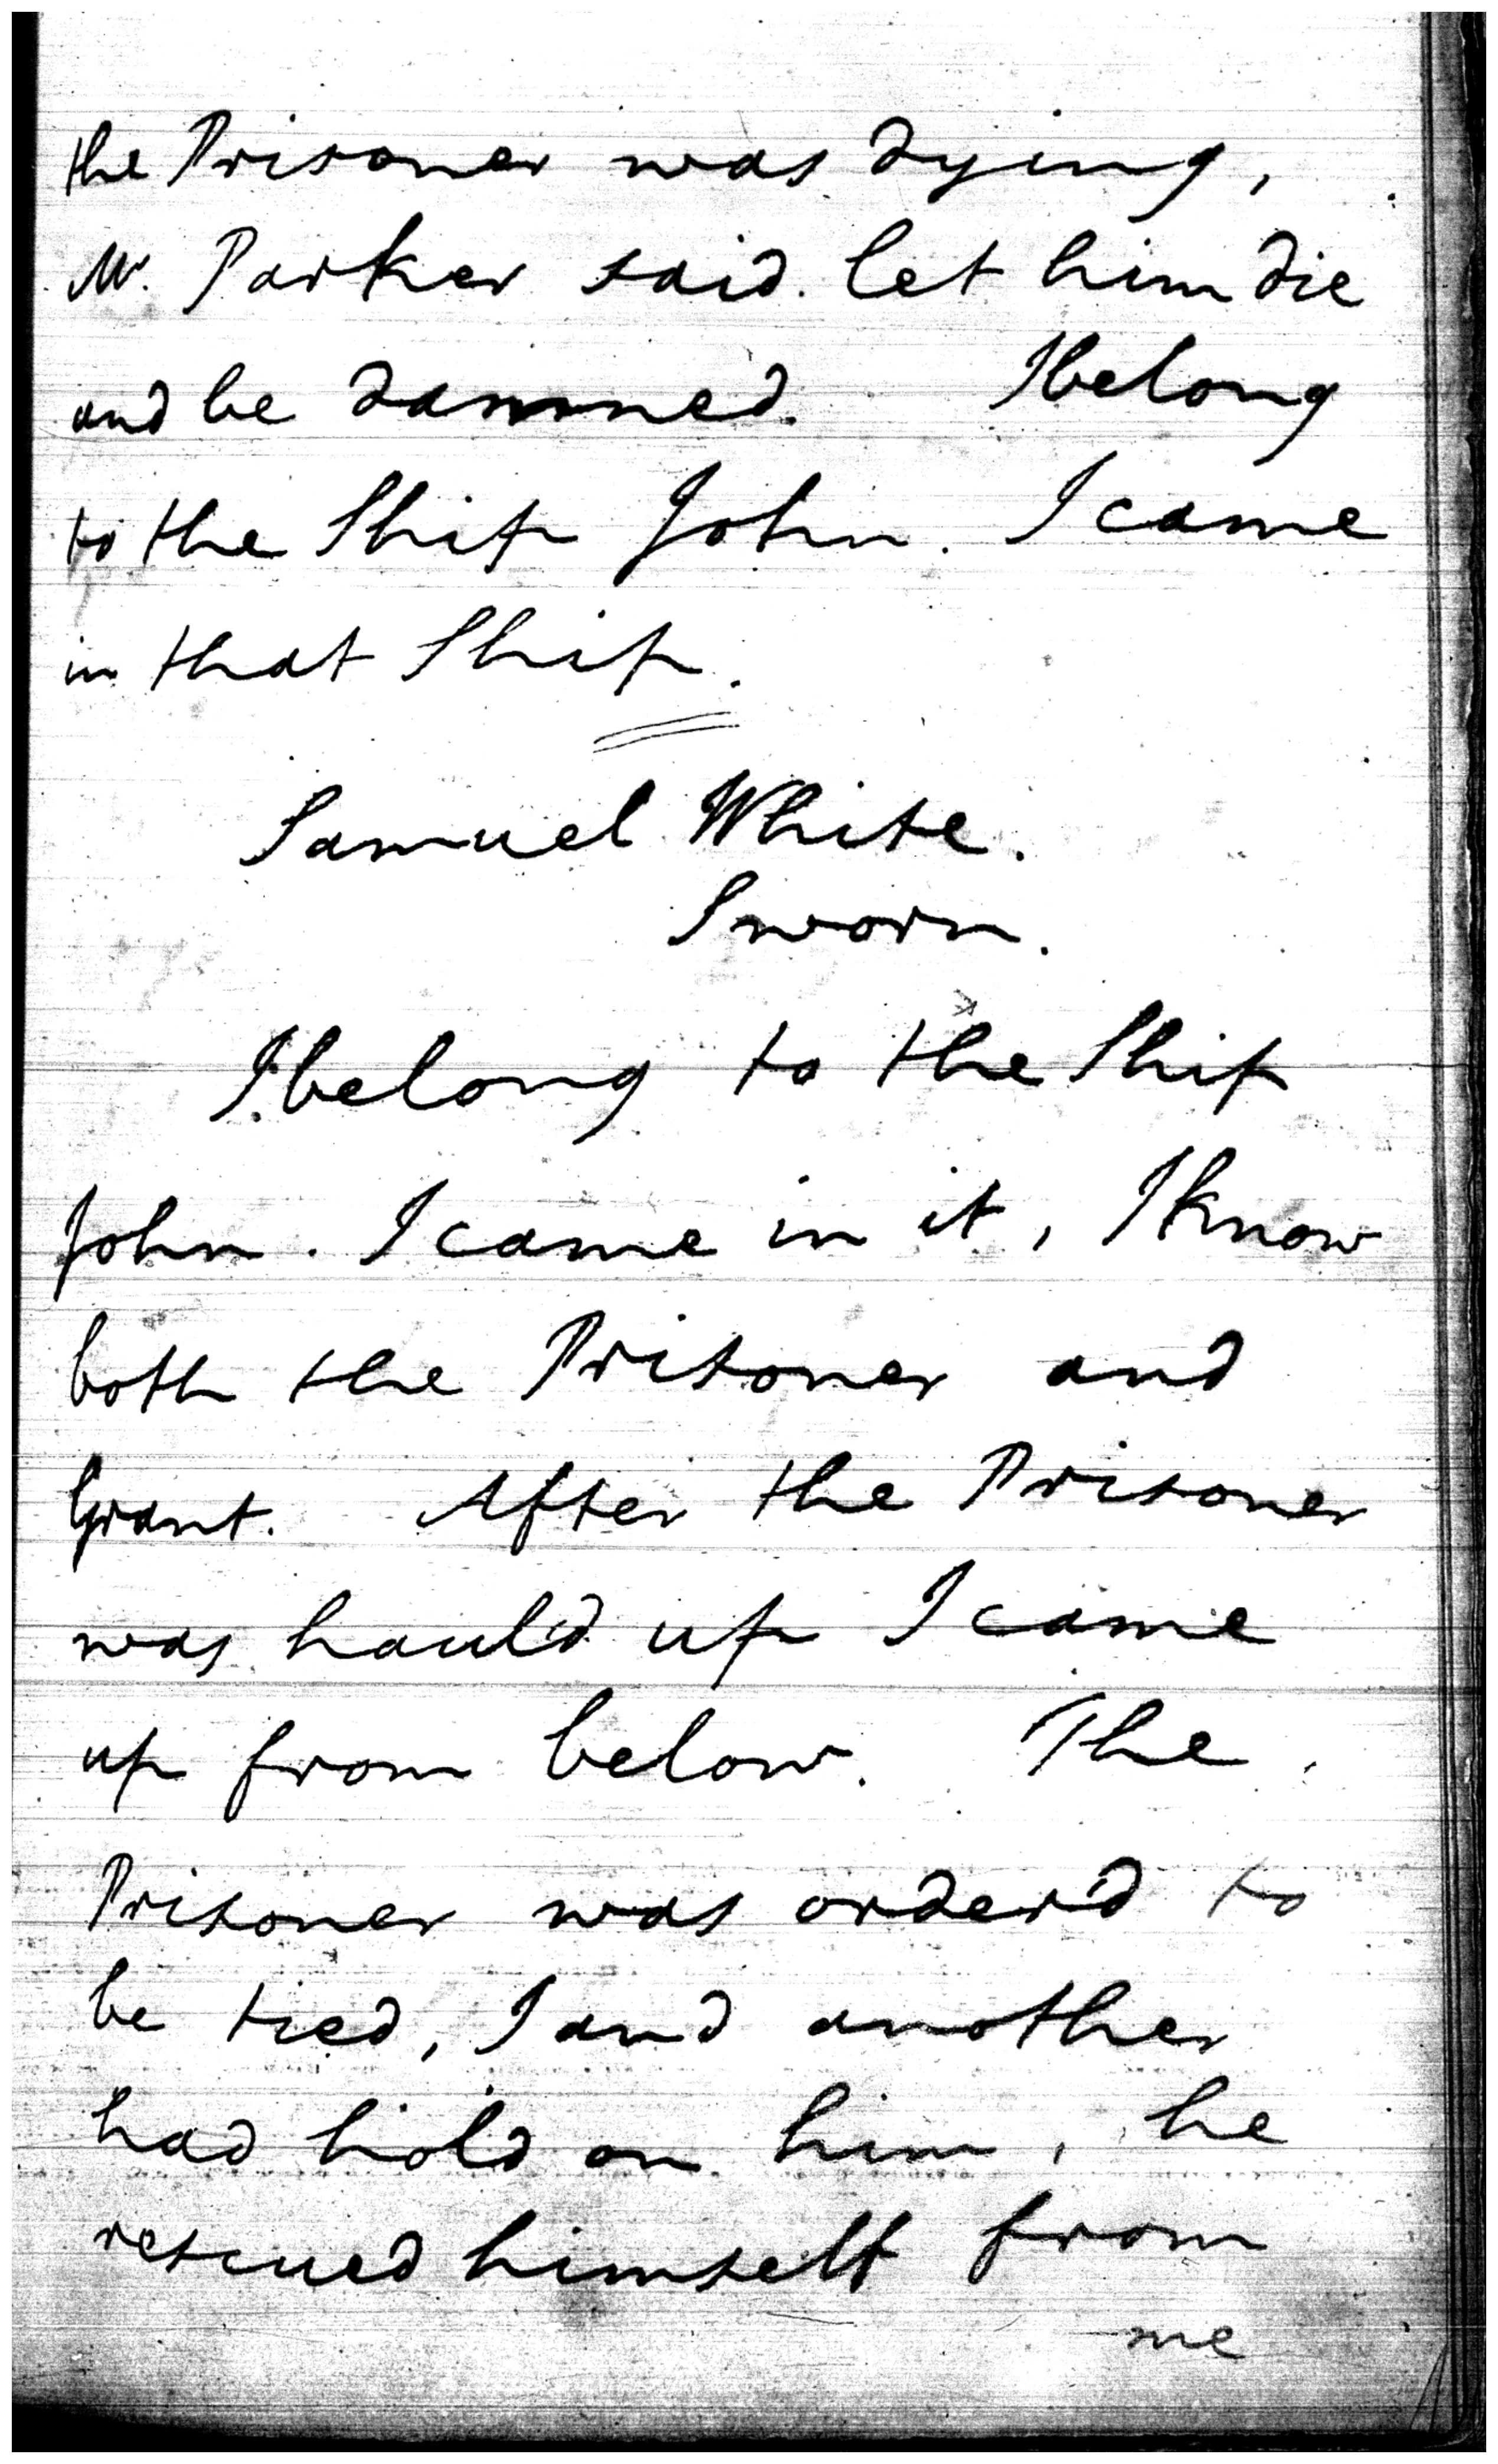 the Prisoner was dying,
Mr. Parker said let him die
and be damned. I belong
to the Ship John. I came
in that Ship.
Samuel White.
Sworn.
I belong to the Ship
John. I came in it, I know
both the Prisoner and
Grant. After the Prisoner
was haul'd up I came
up from below. The
Prisoner was order'd to
be tied, I and another
had hold on him, he
rescued himself from
me